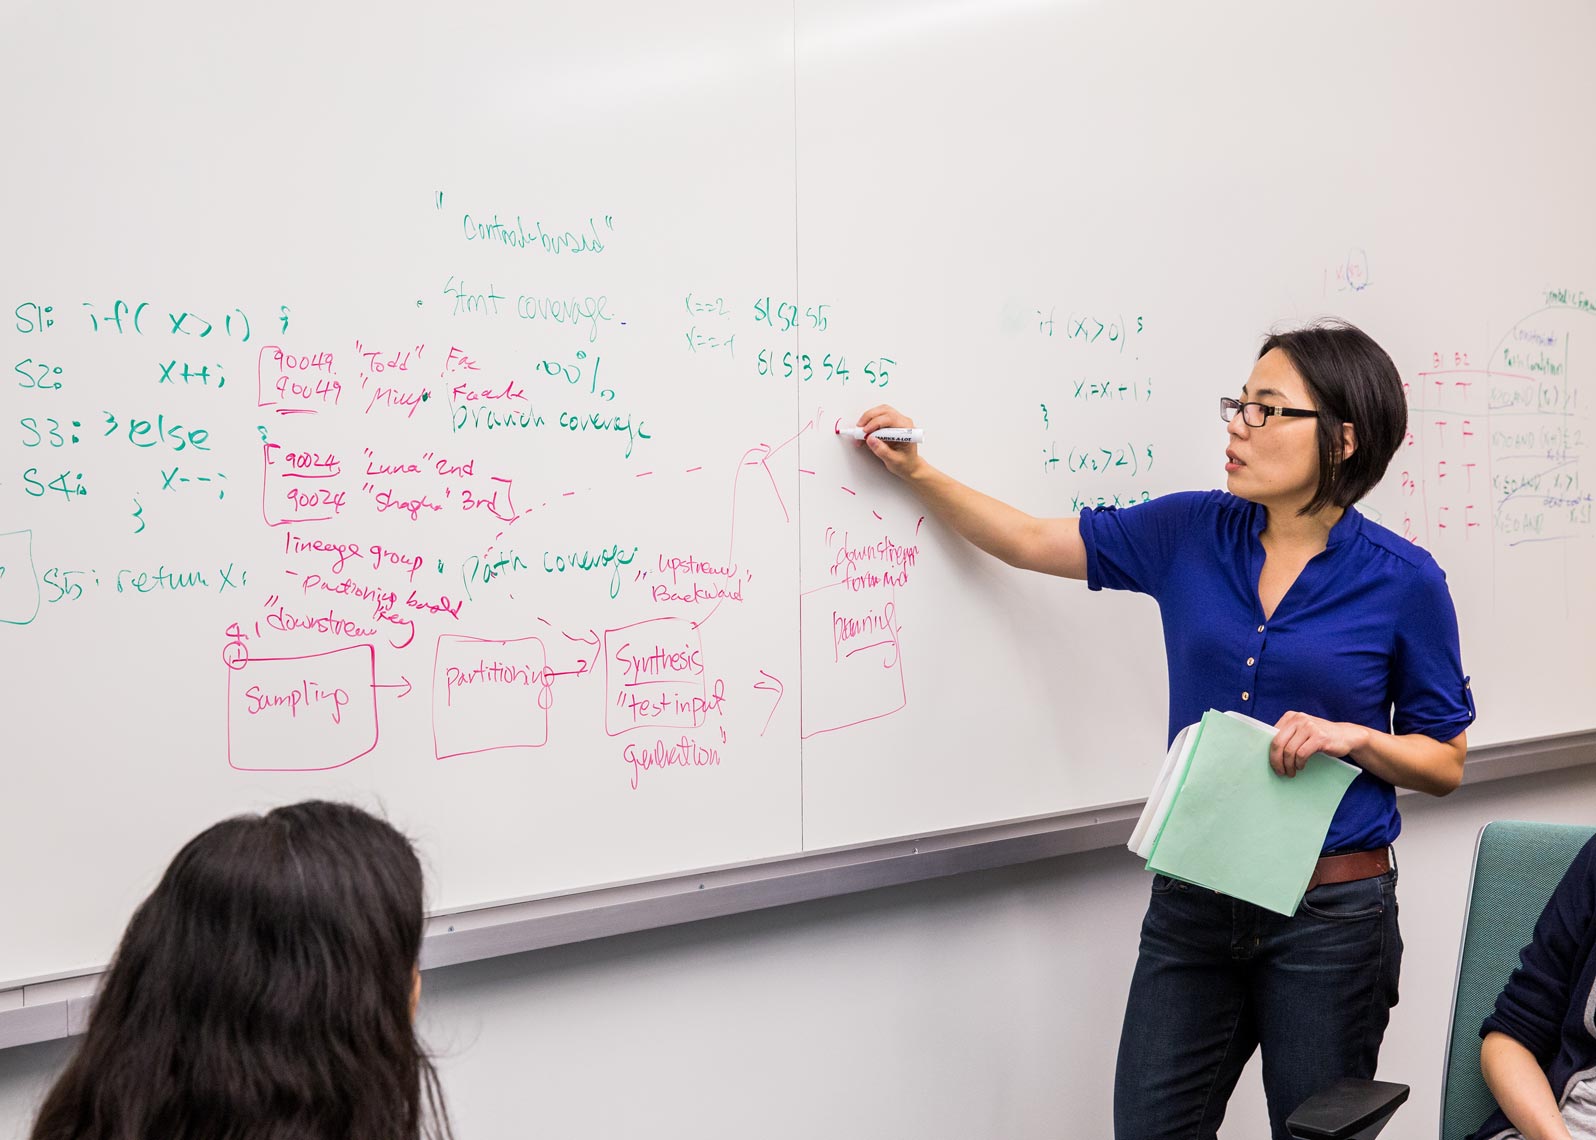 "
Control-based"
Stmt coverage
100%
branch coverage
path coverage
S1: if( x>1) {
S2: x++;
S3: } else {
S4: x--;
}
S5: return x;
90049 "Todd" Fac
90049
90024, "Luna" 2nd
90024 3rd
lineage group
- Partioning based
"downstream" key
4.1
1
Sampling
partitioning
2
Synthesis
"test input
generation"
"upstream
Backward"
"downstream
forward
x==2 S1 S2 S5
S1 S3 S4 S5
if (x1>0) {
x1=x1+1;
}
if (x2>2) {
MARKS-A-LOT
B1 B2
T T
T F
F T
F F
Path Condition